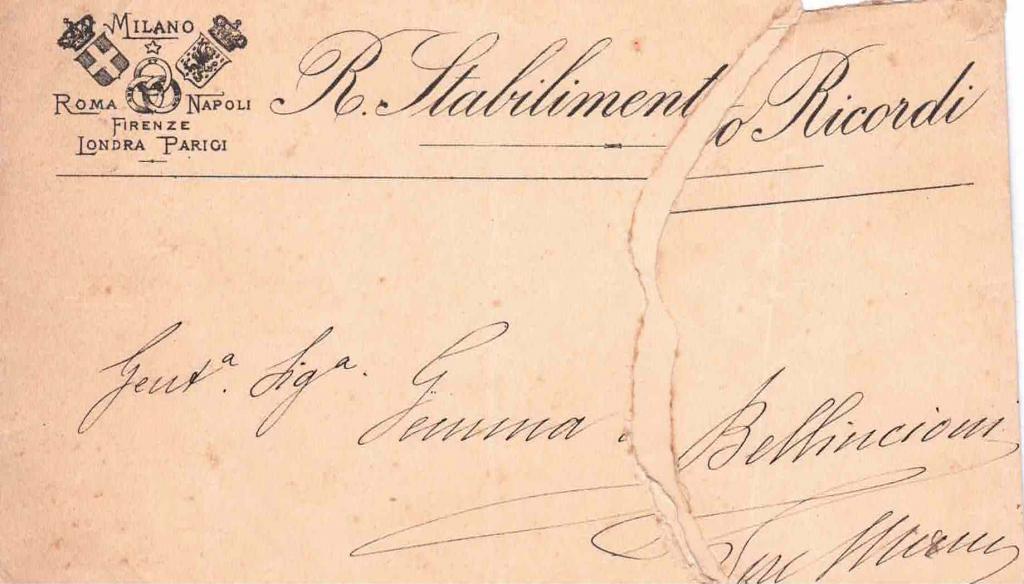 MILANO
ROMA NAPOLI
FIRENZE
LONDRA PARIGI
R. Stabilimento Ricordi
Gentª. Sigª. Gemma Bellincioni